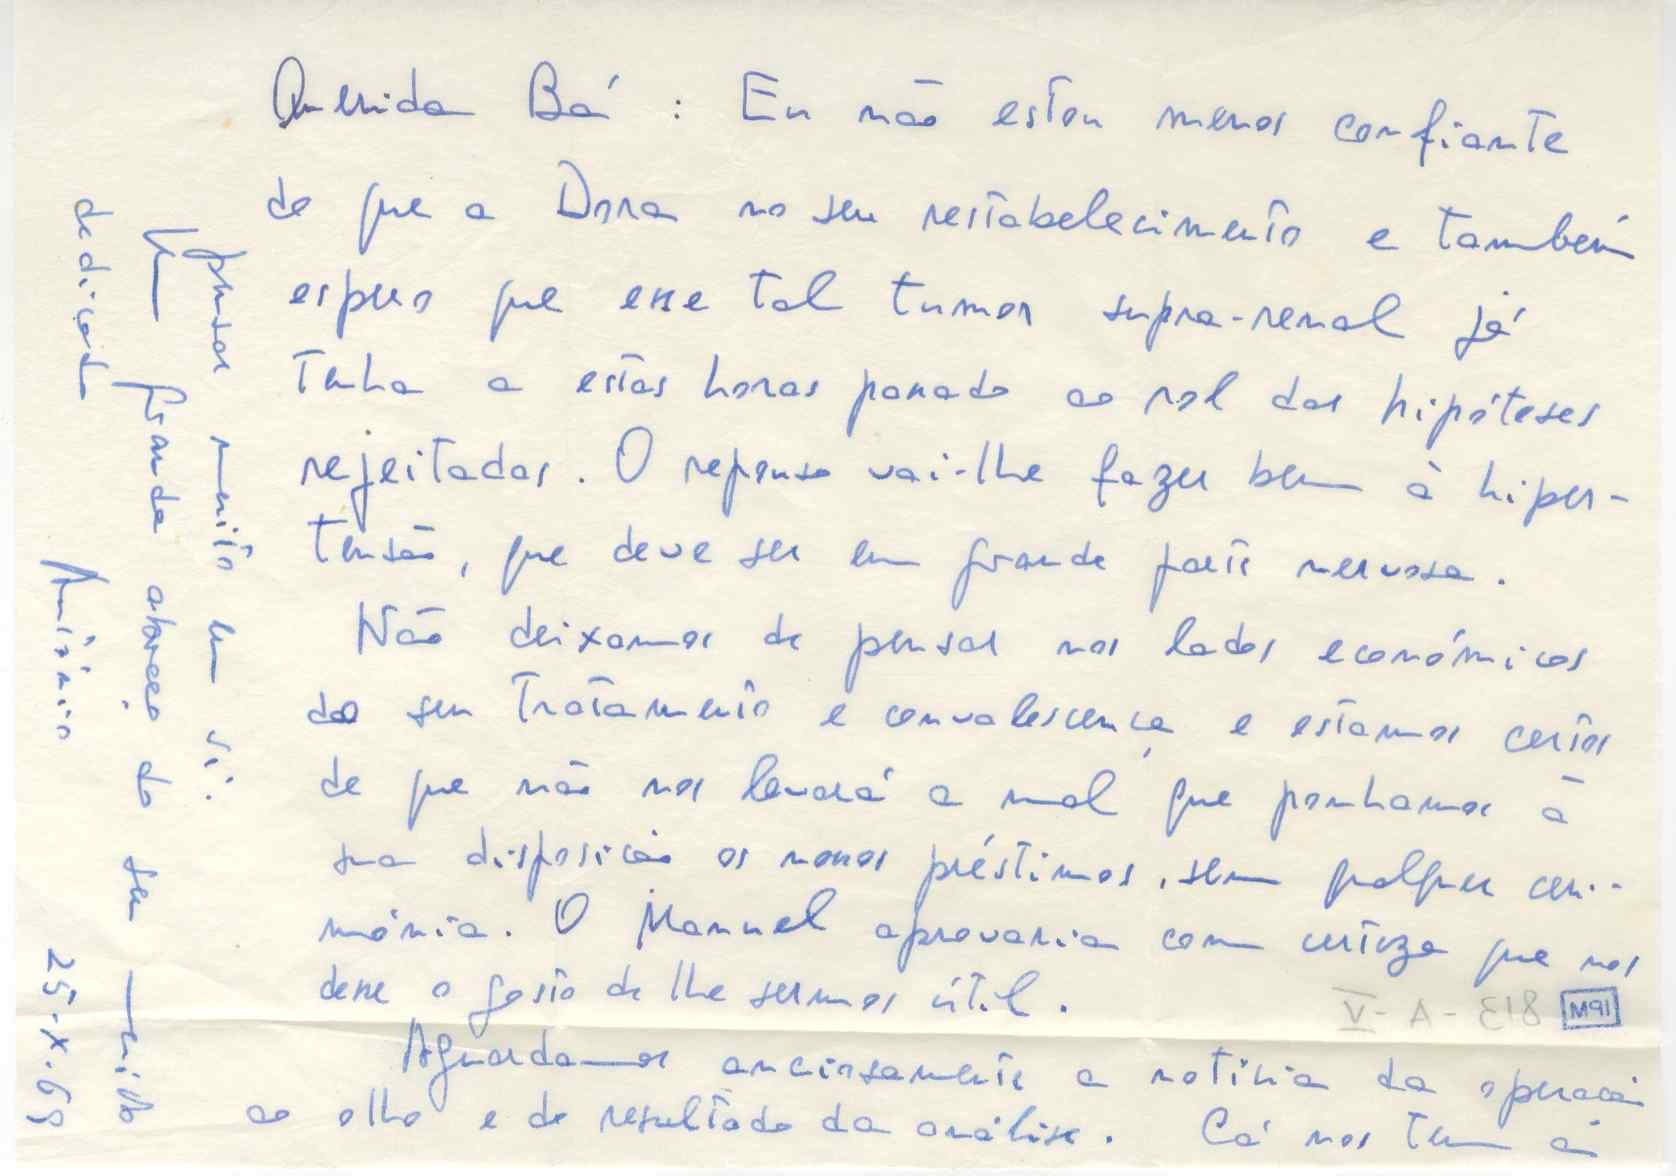 Querida Bá: Eu não estou menos confiante
do que a Dora no seu restabelecimento e também
espero que esse tal tumor supra-renal já
tenha a estas horas passado ao rol das hipóteses
rejeitadas. O repouso vai-lhe fazer bem à hiper-
tensão, que deve ser em grande parte nervosa.
Não deixamos de pensar nos lados económicos
do seu tratamento e convalescença e estamos certos
de que não nos levará a mal que ponhamos à
sua disposição os nossos préstimos, sem qualquer ceri-
mónia. O Manuel aprovaria com certeza que nos
desse o gosto de lhe sermos útil.
Aguardamos anciosamente a notícia da operação
ao olho e do resultado da análise. Cá nos tem a
pensar muito em si.
Um grande abraço do seu muito
dedicado
António 25-X-69
M91 813 - A - V